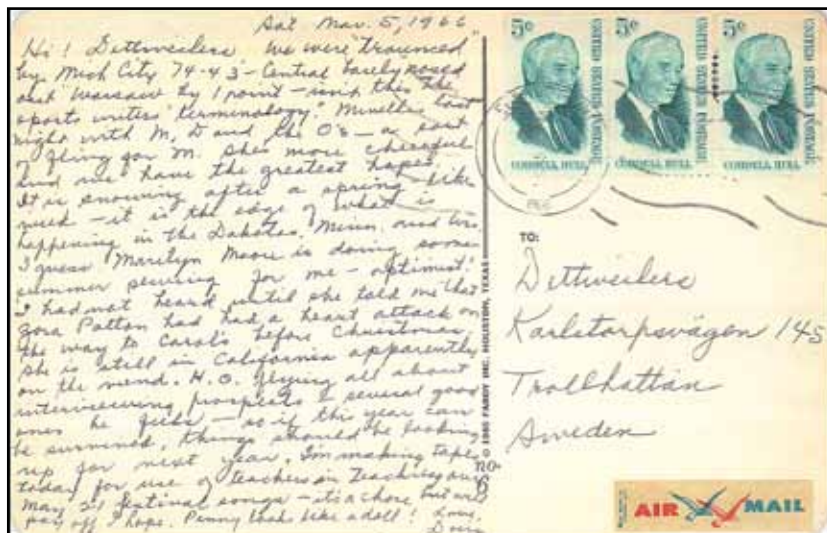 Sat Mar. 5, 1966
Hi! Dettweilers We were "trounced"
by Mich City 74-43 - Central barely nosed
out Warsaw by 1 point - isn't this the
sports writers' terminology? last
night with M, D and the O's - a sort
of fling for M. She's more cheerful
and we have the greatest hopes.
It is snowing after a spring-like
week - it is the edge of what is
happening in the Dakotas, Minn. and Wis.
I guess Marilyn Moore is doing some
summer sewing for me - optimist!
I had not heard until she told me that
Zora Patton had had a heart attack on
the way to Carol's before Christmas,
she is still in California apparently
on the mend. H.O. flying all about
interviewing prospects & several good
ones he feels - so if this year can
be survived, things should be looking
up for next year. I'm making tape
today for use of teachers in teaching our
May 21 festival songs - it's a chore but will
pay off I hope. Penny looks like a doll! Love,
Doris
5c 5c 5c
UNITED STATES POSTAGE UNITED STATES POSTAGE UNITED STATES POSTAGE
CORDELL HULL CORDELL HULL CORDELL HULL
TO:
Dettweilers
Karlstorpsvägen 145
Trollhattan
Sweden
HOUSTON, TEXAS
AIR MAIL